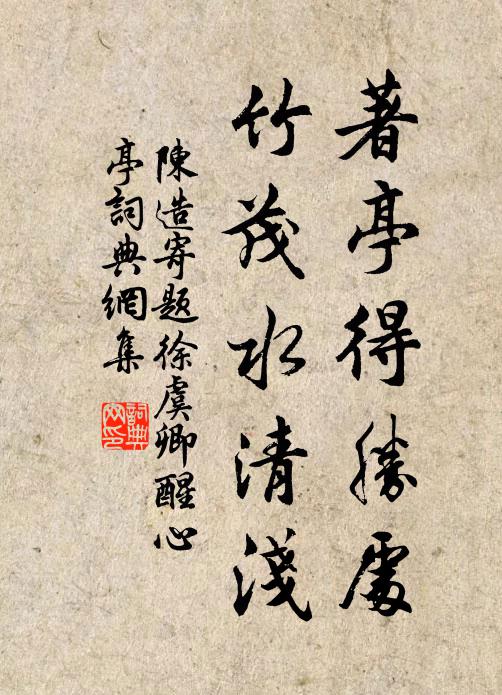 著亭得勝處
竹茂水清淺
陳造寄題徐虞卿醒心
亭詞典網集
詞典
网印